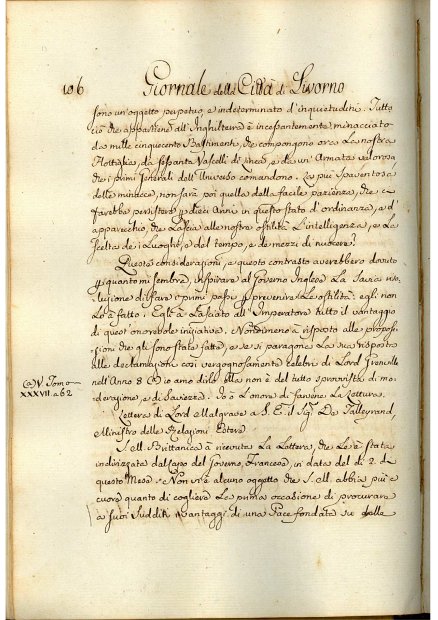 106 Giornale della Città di Livorno
sono un'oggetto perpetuo, e indeterminato d'inquietudini. Tutto
ciò che appartiene all'Inghilterra è incessantemente minacciato
da mille cinquecento Bastimenti, che compongono ora la nostra
Flottiglia, da sessanta Vascelli di linea, e da un'Armata valorosa
che i primi Generali dell'Universo comandono. La più spaventosa
delle minacce, non sarà poi quella della facile pazienza, che ci
farebbe persistere p dieci Anni in questo stato d'ordinanza, e d'
apparecchio che lascia alle nostre ostilità l'intelligenza, e la
scelta de i luoghi, e del tempo, e de mezzi di nuocere?
Queste considerazioni, e questo contrasto averebbero dovuto
p quanto mi sembra, inspirare al Governo Inglese la savia riso-
luzione di fare i primi passi p prevenire le ostilità: egli non
lo à fatto: Egli à lasciato all'Imperatore tutto il vantaggio
di quest'onorevole iniziativa. Nondimeno à risposto alle proposi-
zioni che gli sono state fatte, e se si paragona la sua risposta
alle declamazioni così vergognosamente celebri di Lord Grenville
nell'Anno 8 (a) io amo dire ella non è del tutto sprovvista di mo-
derazione, e di saviezza. Io ò l'onore di farvene la lettura.
(a) V. Tomo
XXXVII. a 62
Lettera di Lord Mulgrave a S. E. il Sig. De Talleyrand,
Ministro delle Relazioni Estere
S. M. Brittanica à ricevuta la Lettera, che le è stata
indirizzata dal Capo del Governo Francese, in data del dì 2. di
questo Mese. Non vi è alcuno oggetto che S. M. abbia più a
cuore quanto di cogliere la prima occasione di procurare
a suoi Sudditi i vantaggi di una Pace fondata su delle